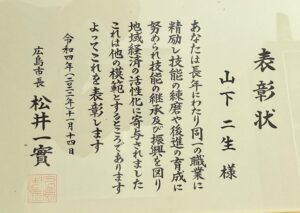 表彰状
山下二生様
あなたは長年にわたり同一の職業に
精励し技能の練磨や後進の育成に
努められ技能の継承及び振興を図り
地域経済の活性化に寄与されました
これは他の模範とするところであります
よってこれを表彰します
令和四年(二〇二二年)十一月十四日
広島市長 松井一實